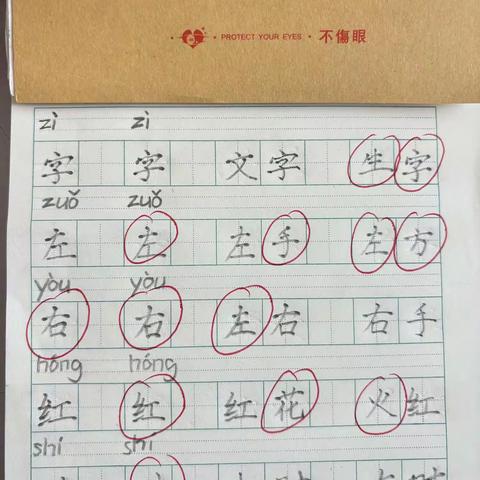 PROTECT YOUR EYES · 不傷眼
zì zì
字 字 文字 生字
zuǒ zuǒ
左 左 左手 左方
yòu yòu
右 右 左右 右手
hóng hóng
红 红 红花 火红
shí shí